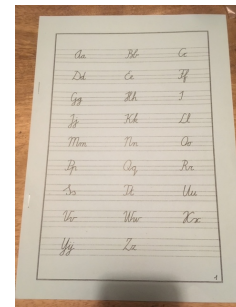 Aa Bb Cc
Dd Ee Ff
Gg Hh I
Jj Kk Ll
Mm Nn Oo
Pp Qq Rr
Ss Tt Uu
Vv Ww Xx
Yy Zz
1